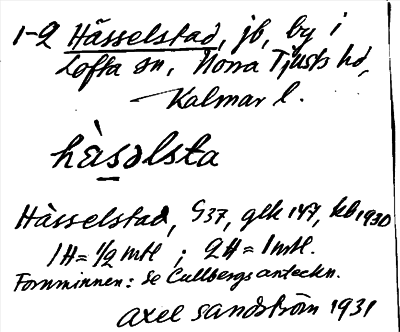 1-2 Hässelstad, jb, by i
Lofta sn, Norra Tjusts hd,
Kalmar l.
hàsəlsta
Hässelstad, G37, glk 147, kb 1930
1 H = 1/2 mtl ; 2 H = 1 mtl.
Fornminnen: Se Cullbergs anteckn.
Axel Sandström 1931